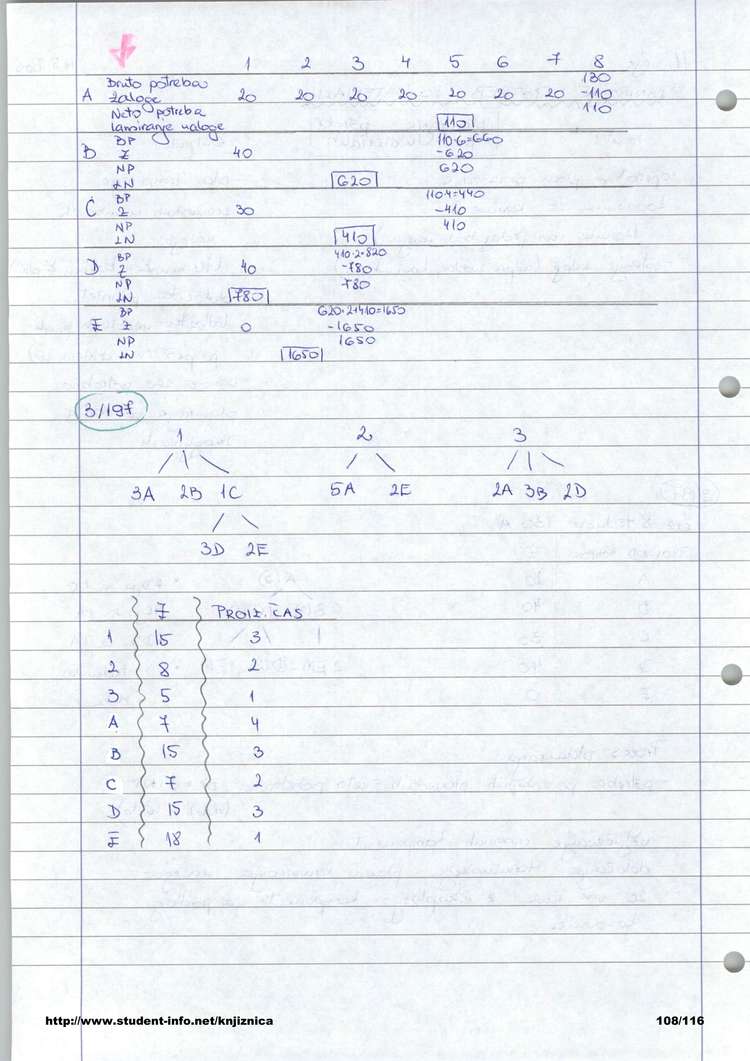 1 2 3 4 5 6 7 8
Bruto potreba 130
A zaloge 20 20 20 20 20 20 20 -110
Neto potreba 110
lansiranje naloge 110
B BP 110·6=660
Z 40 -620
NP 620
LN 620
C BP 110·4=440
Z 30 -410
NP 410
LN 410
D BP 410·2=820
Z 40 -780
NP 780
LN 780
E BP 620·2+410=1650
Z 0 -1650
NP 1650
LN 1650
3/197
1 2 3
3A 2B 1C 5A 2E 2A 3B 2D
3D 2E
Z PROIZ. ČAS
1 15 3
2 8 2
3 5 1
A 7 4
B 15 3
C 7 2
D 15 3
E 18 1
http://www.student-info.net/knjiznica 108/116